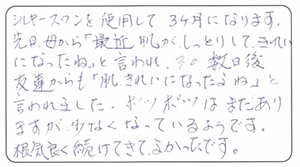 シルキースワンを使用して3ヶ月になります。
先日、母から「最近 肌が、しっとりして、きれい
になったね」と言われ、その数日後
友達からも「肌、きれいになったよね」と
言われました。ポツポツはまだあり
ますが、少なくなっているようです。
根気良く続けてきて、よかったです。